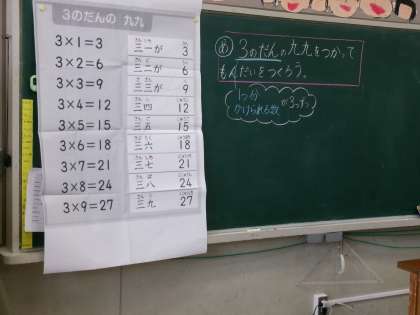 3のだんの 九九
3×1=3 三一が 3
3×2=6 三二が 6
3×3=9 三三が 9
3×4=12 三四 12
3×5=15 三五 15
3×6=18 三六 18
3×7=21 三七 21
3×8=24 三八 24
3×9=27 三九 27
あ 3のだんの九九をつかって
もんだいをつくろう。
1つ分
かけられる数が3